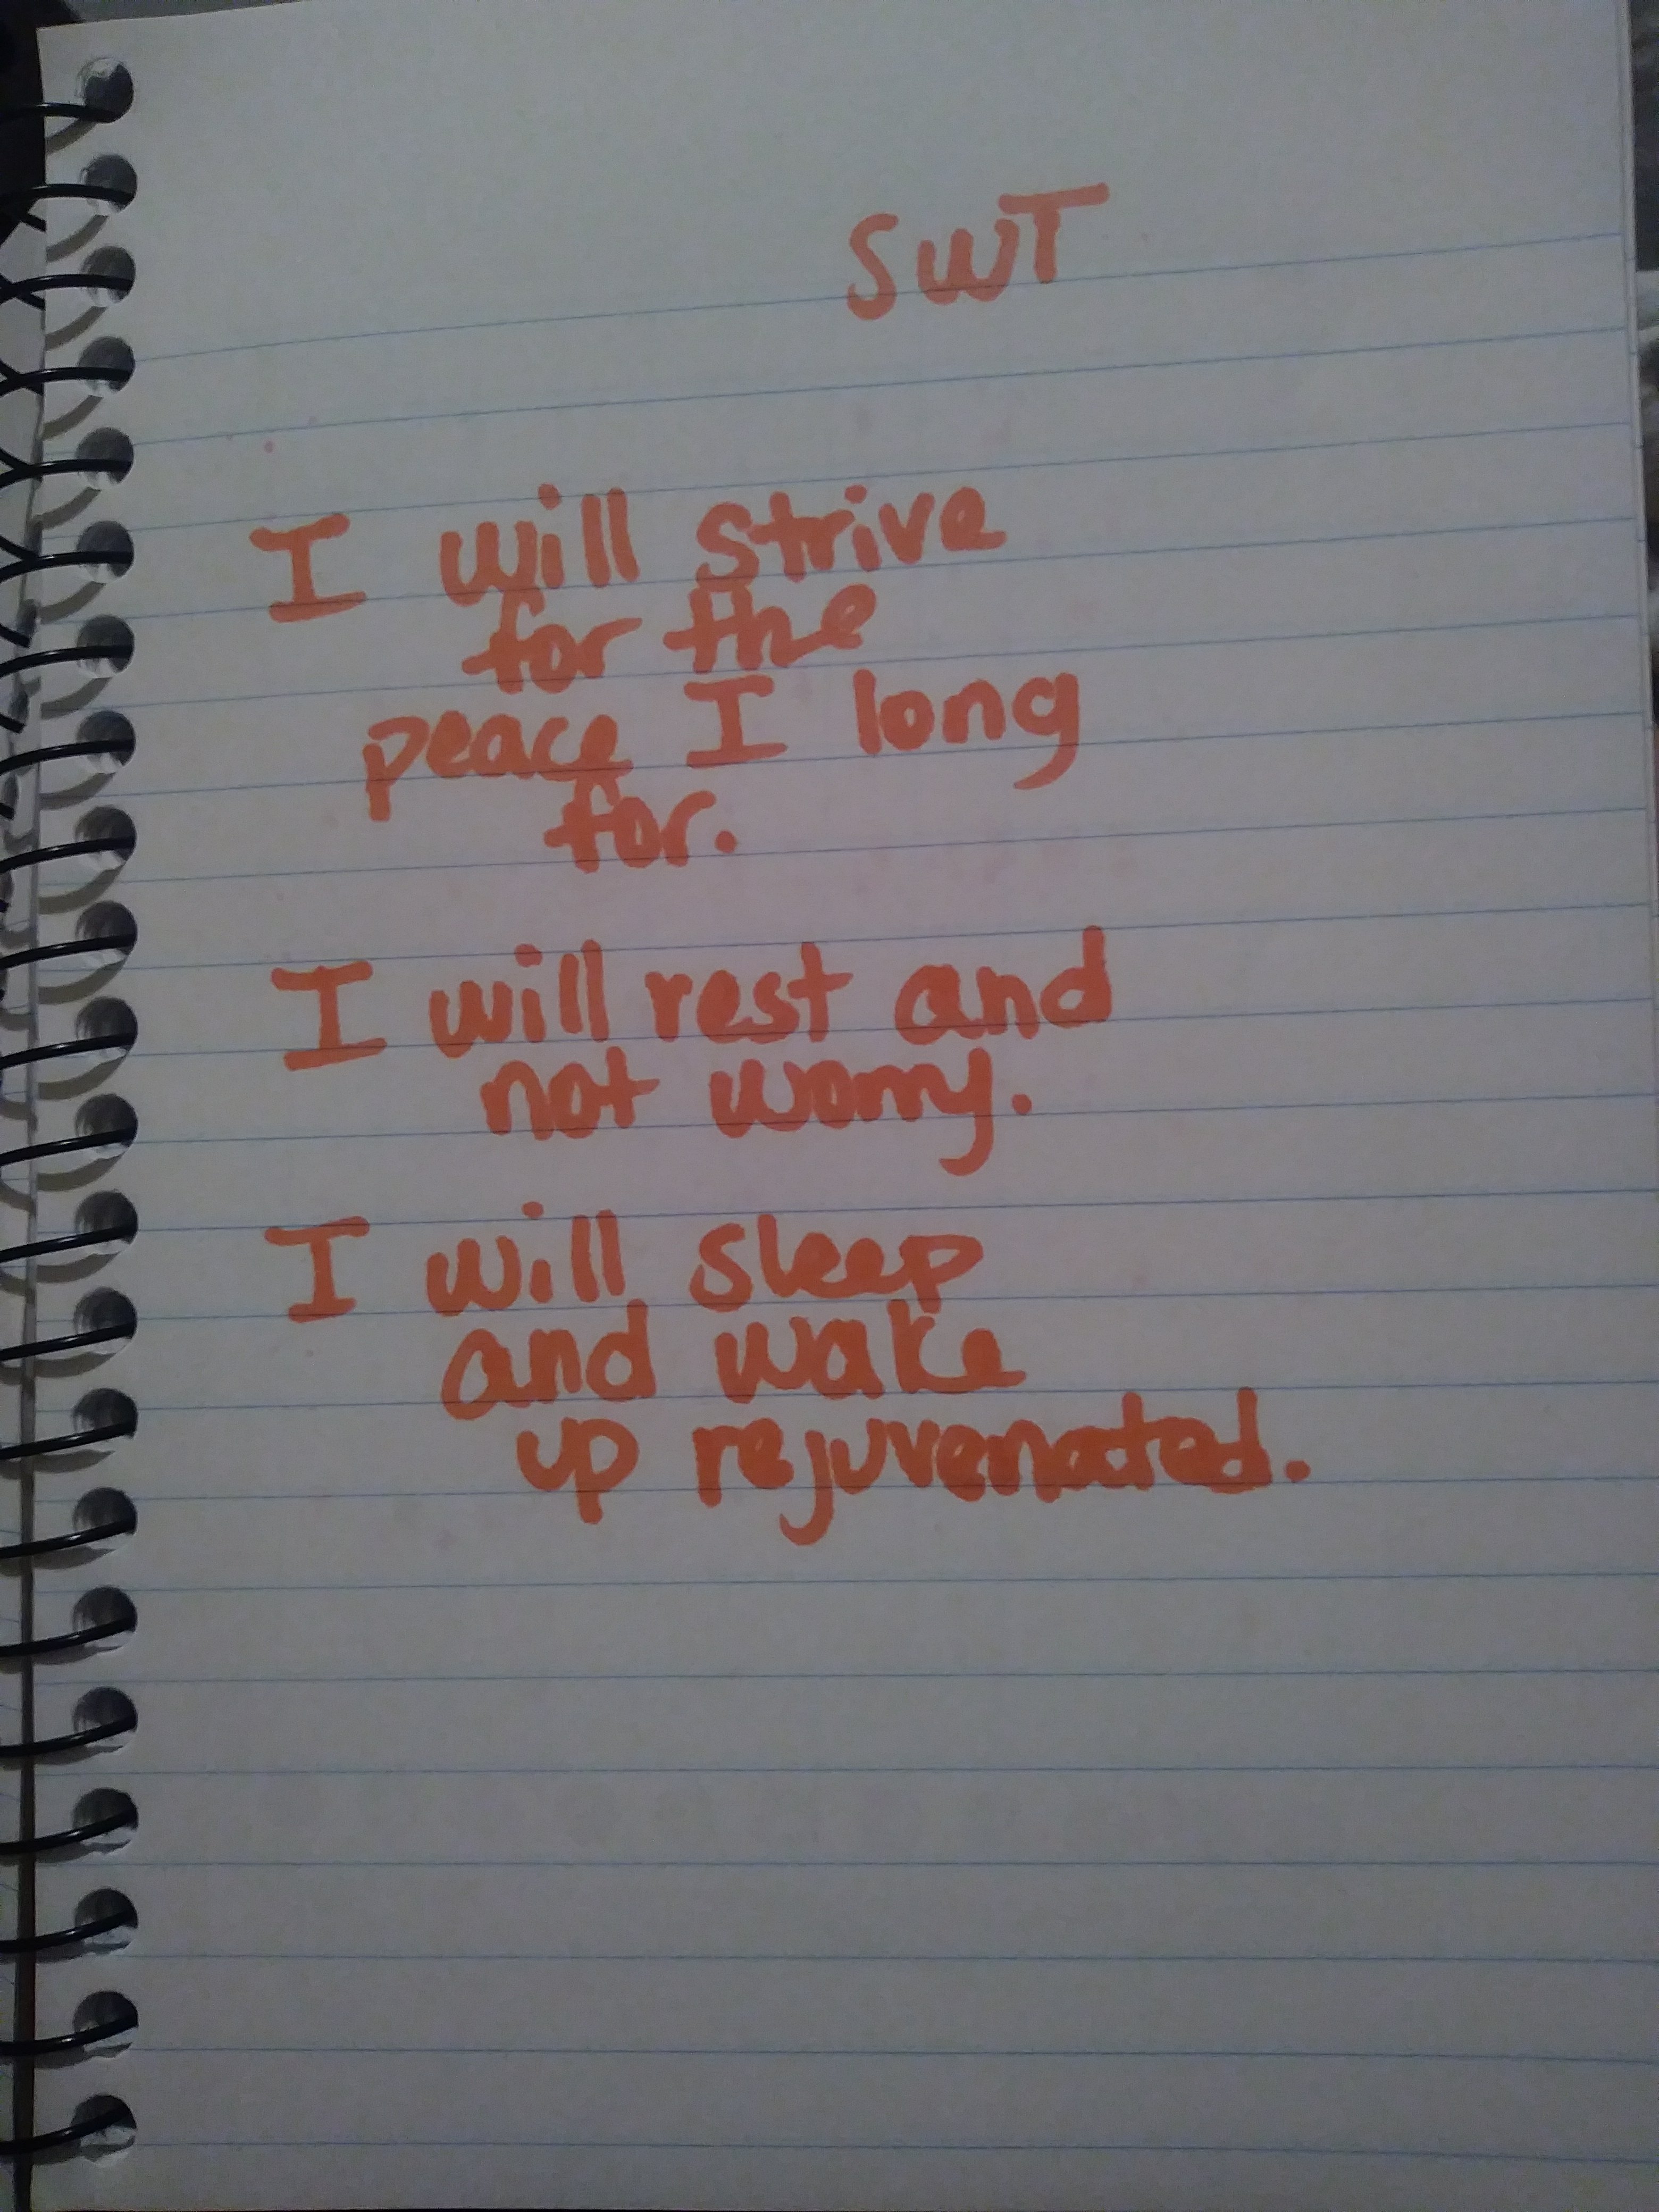 SWT
I will strive
for the
peace I long
for.
I will rest and
not worry.
I will sleep
and wake
up rejuvenated.